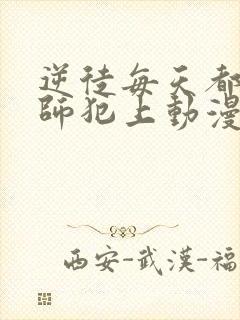 逆徒每天都
師犯上動漫
西安-武漢-福